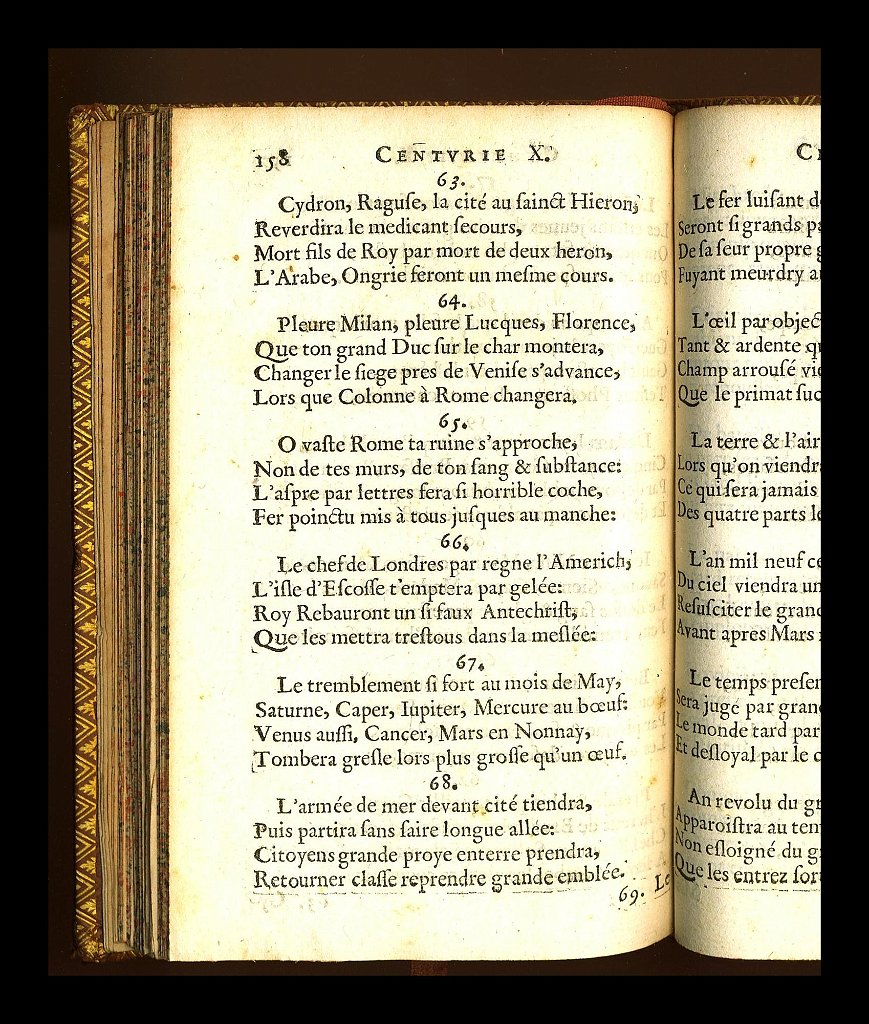 158 CENTVRIE X.
63.
Cydron, Raguſe, la cité au ſainct Hieron,
Reverdira le medicant ſecours,
Mort fils de Roy par mort de deux heron,
L'Arabe, Ongrie feront un meſme cours.
64.
Pleure Milan, pleure Lucques, Florence,
Que ton grand Duc ſur le char montera,
Changer le ſiege pres de Veniſe s'advance,
Lors que Colonne à Rome changera.
65.
O vaſte Rome ta ruine s'approche,
Non de tes murs, de ton ſang & ſubſtance:
L'aſpre par lettres fera ſi horrible coche,
Fer poinctu mis à tous juſques au manche:
66.
Le chef de Londres par regne l'Americh,
L'iſle d'Eſcoſſe t'emptera par gelée:
Roy Rebauront un ſi faux Antechriſt,
Que les mettra treſtous dans la meſlée:
67.
Le tremblement ſi fort au mois de May,
Saturne, Caper, Iupiter, Mercure au bœuf:
Venus auſſi, Cancer, Mars en Nonnay,
Tombera greſle lors plus groſſe qu'un œuf.
68.
L'armée de mer devant cité tiendra,
Puis partira ſans faire longue allée:
Citoyens grande proye enterre prendra,
Retourner claſſe reprendre grande emblée.
69. Le
Le fer luiſant
Seront ſi grands
De ſa ſeur propre
Fuyant meurdry
L'œil par
Tant & ardente
Champ arrouſé
Que le primat
La terre & l'air
Lors qu'on
Ce qui ſera jamais
Des quatre parts
L'an mil neuf
Du ciel viendra
Reſuſciter le
Avant apres Mars
Le temps
Sera jugé par
Le monde tard
Et deſloyal par le
An revolu du
Apparoiſtra au
Non eſloigné du
Que les entrez